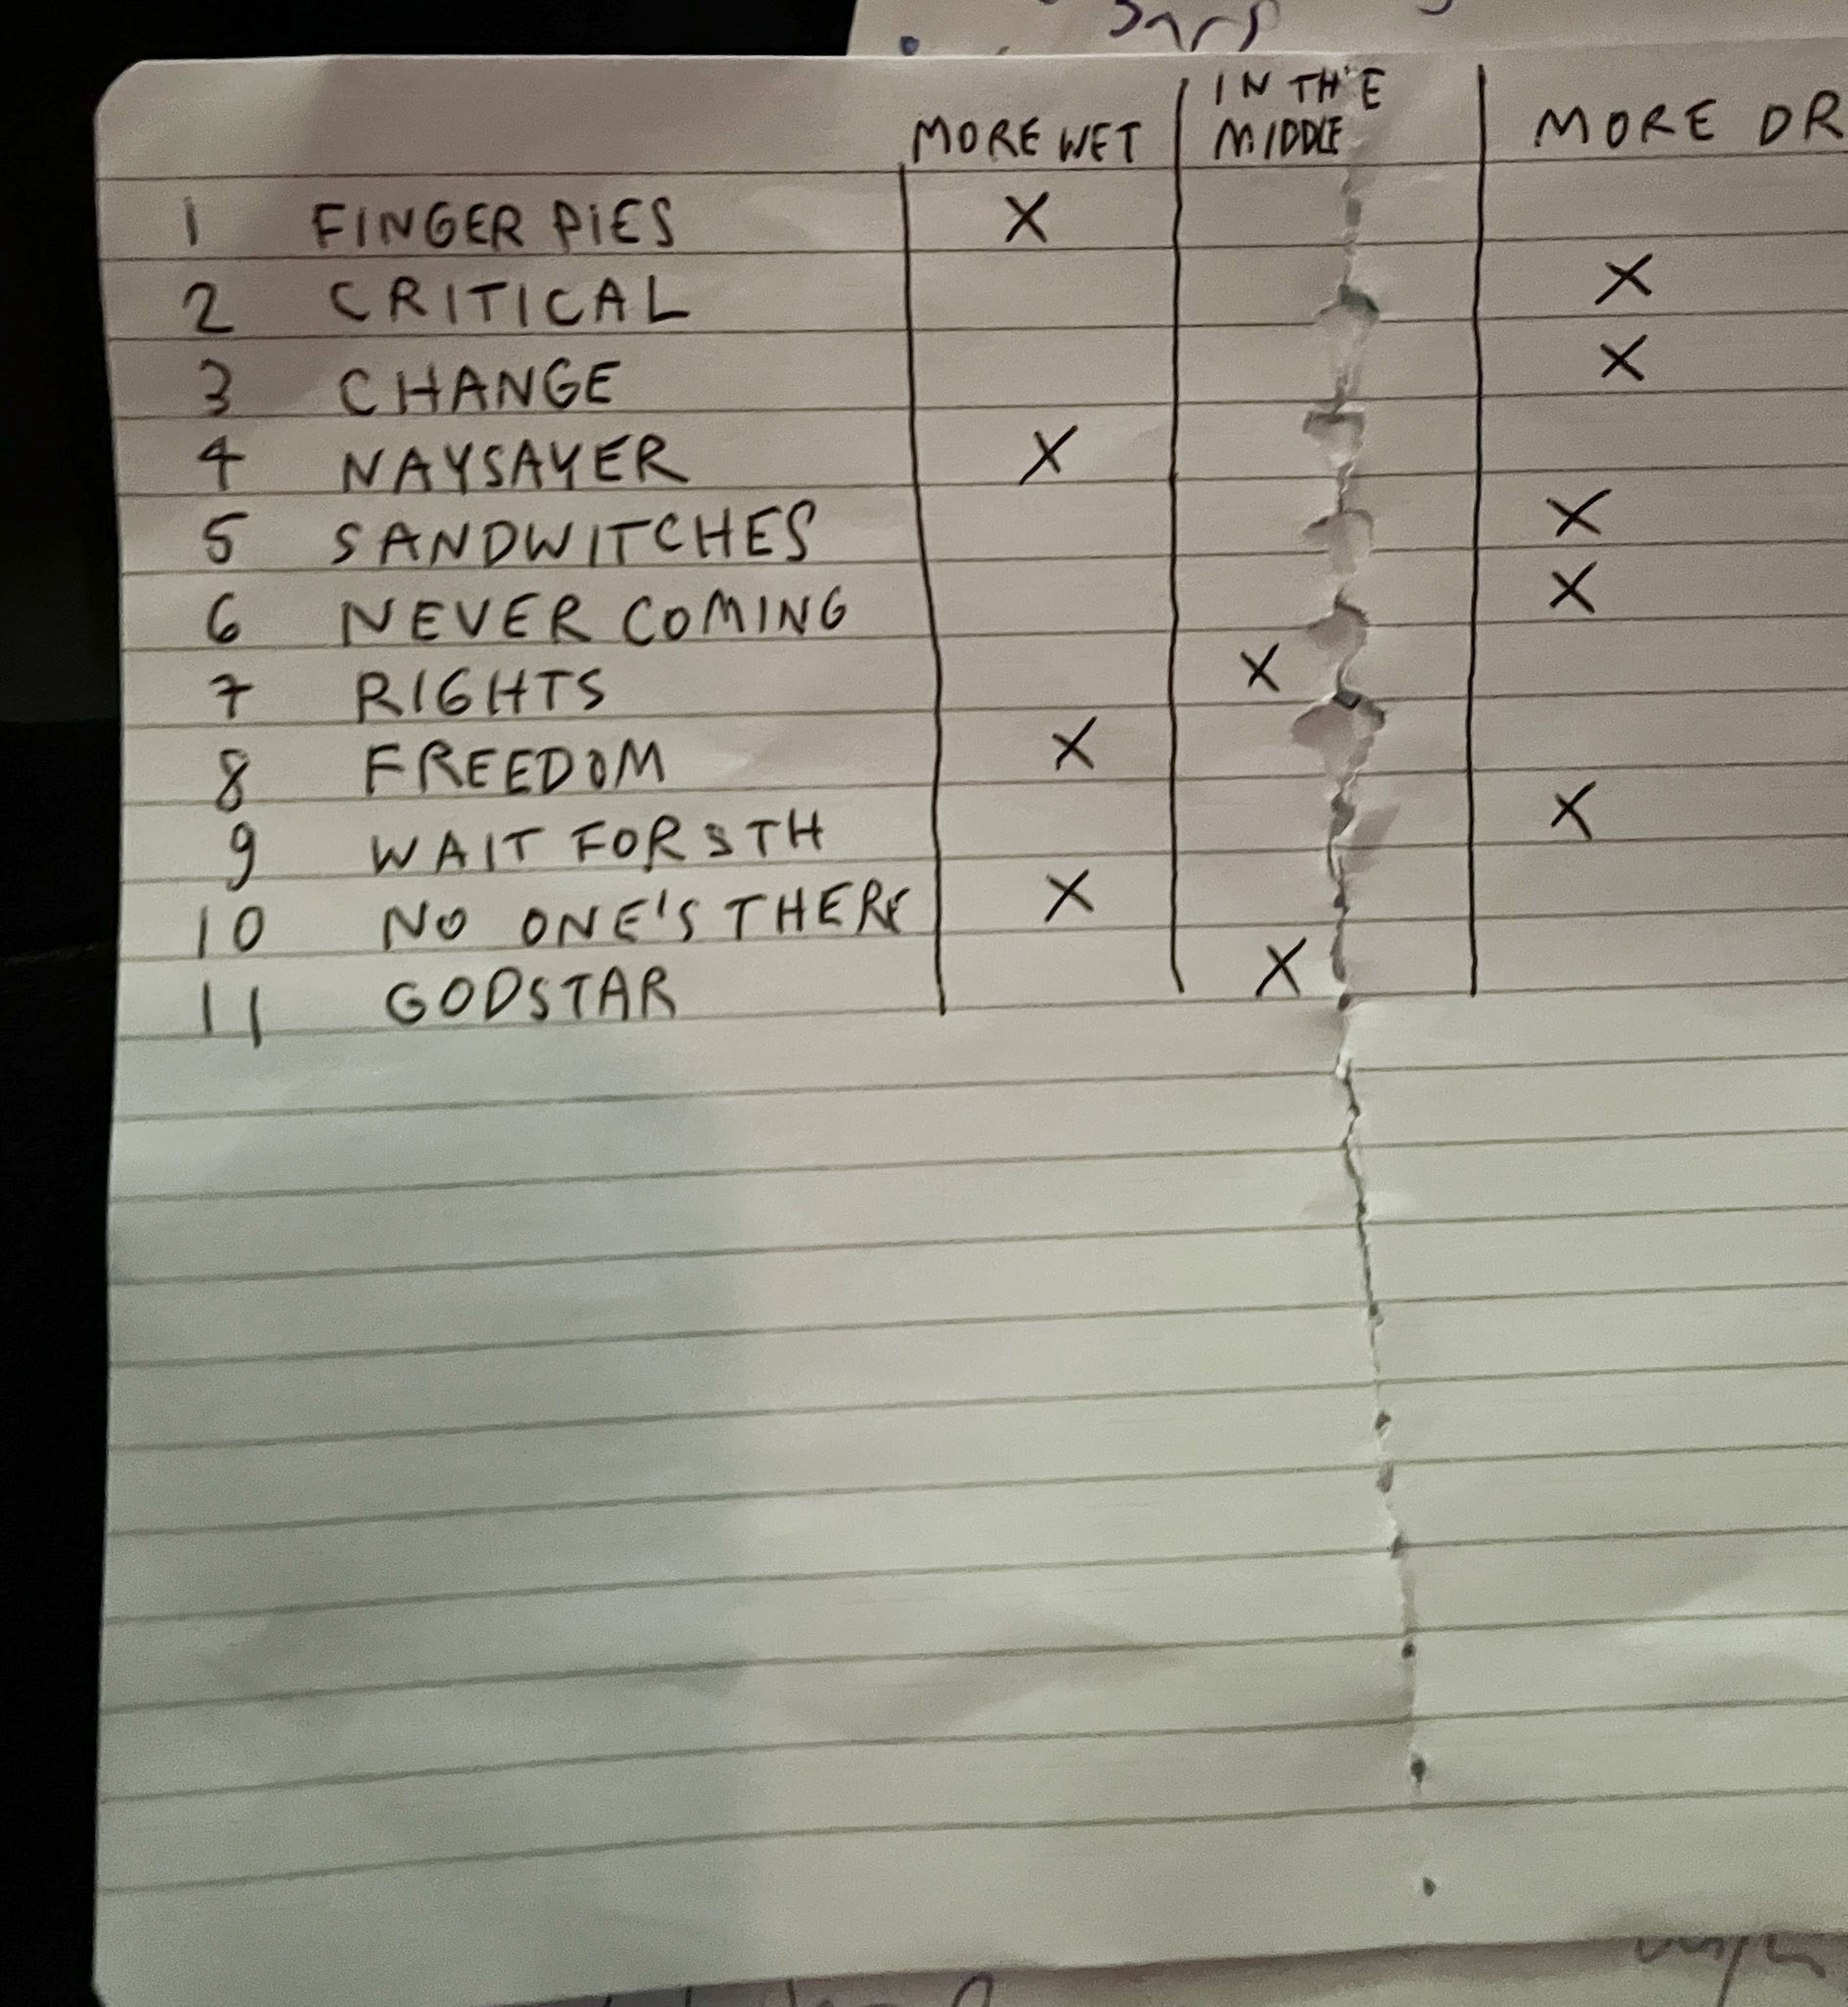 MORE WET | IN THE MIDDLE | MORE DR
1 FINGER PIES X
2 CRITICAL X
3 CHANGE X
4 NAYSAYER X
5 SANDWITCHES X
6 NEVER COMING X
7 RIGHTS X
8 FREEDOM X
9 WAIT FOR STH X
10 NO ONE'S THERE X
11 GODSTAR X